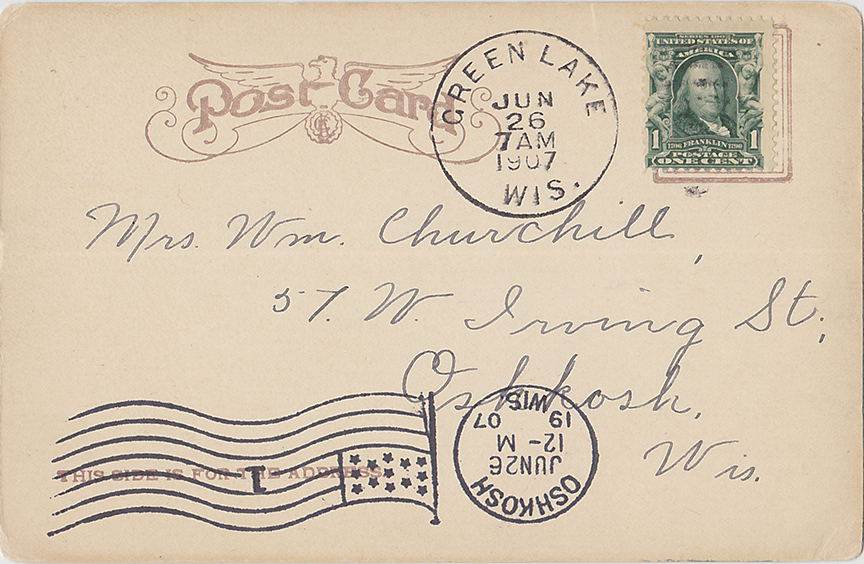 Post Card
GREEN LAKE
JUN
26
7AM
1907
WIS.
SERIES 1902
UNITED STATES OF
AMERICA
1 1706 FRANKLIN 1790 1
POSTAGE
ONE CENT
Mrs. Wm. Churchill,
57. W. Irving St.,
Oshkosh,
Wis.
THIS SIDE IS FOR THE ADDRESS
1
OSHKOSH
JUN 26
12- M
19 07
WIS